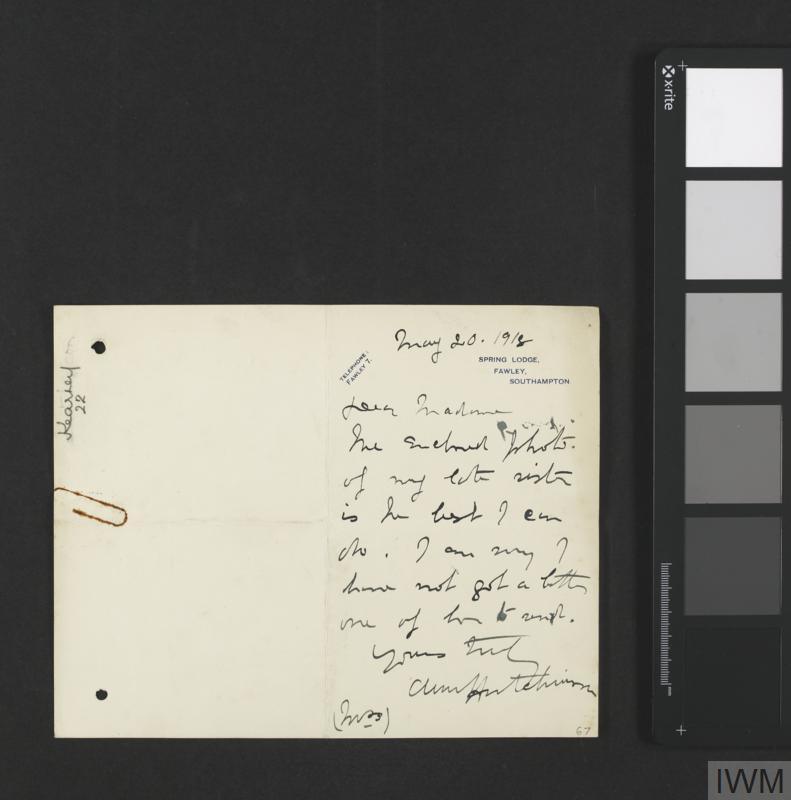 May 20. 1918
TELEPHONE:
FAWLEY 7.
SPRING LODGE,
FAWLEY,
SOUTHAMPTON
Dear Madame
The enclosed photo.
of my late sister
is the best I can
do. I am sorry I
have not got a better
one of her to send.
Yours truly
Hutchinson
(Miss)
22
67
x-rite
mm
IWM